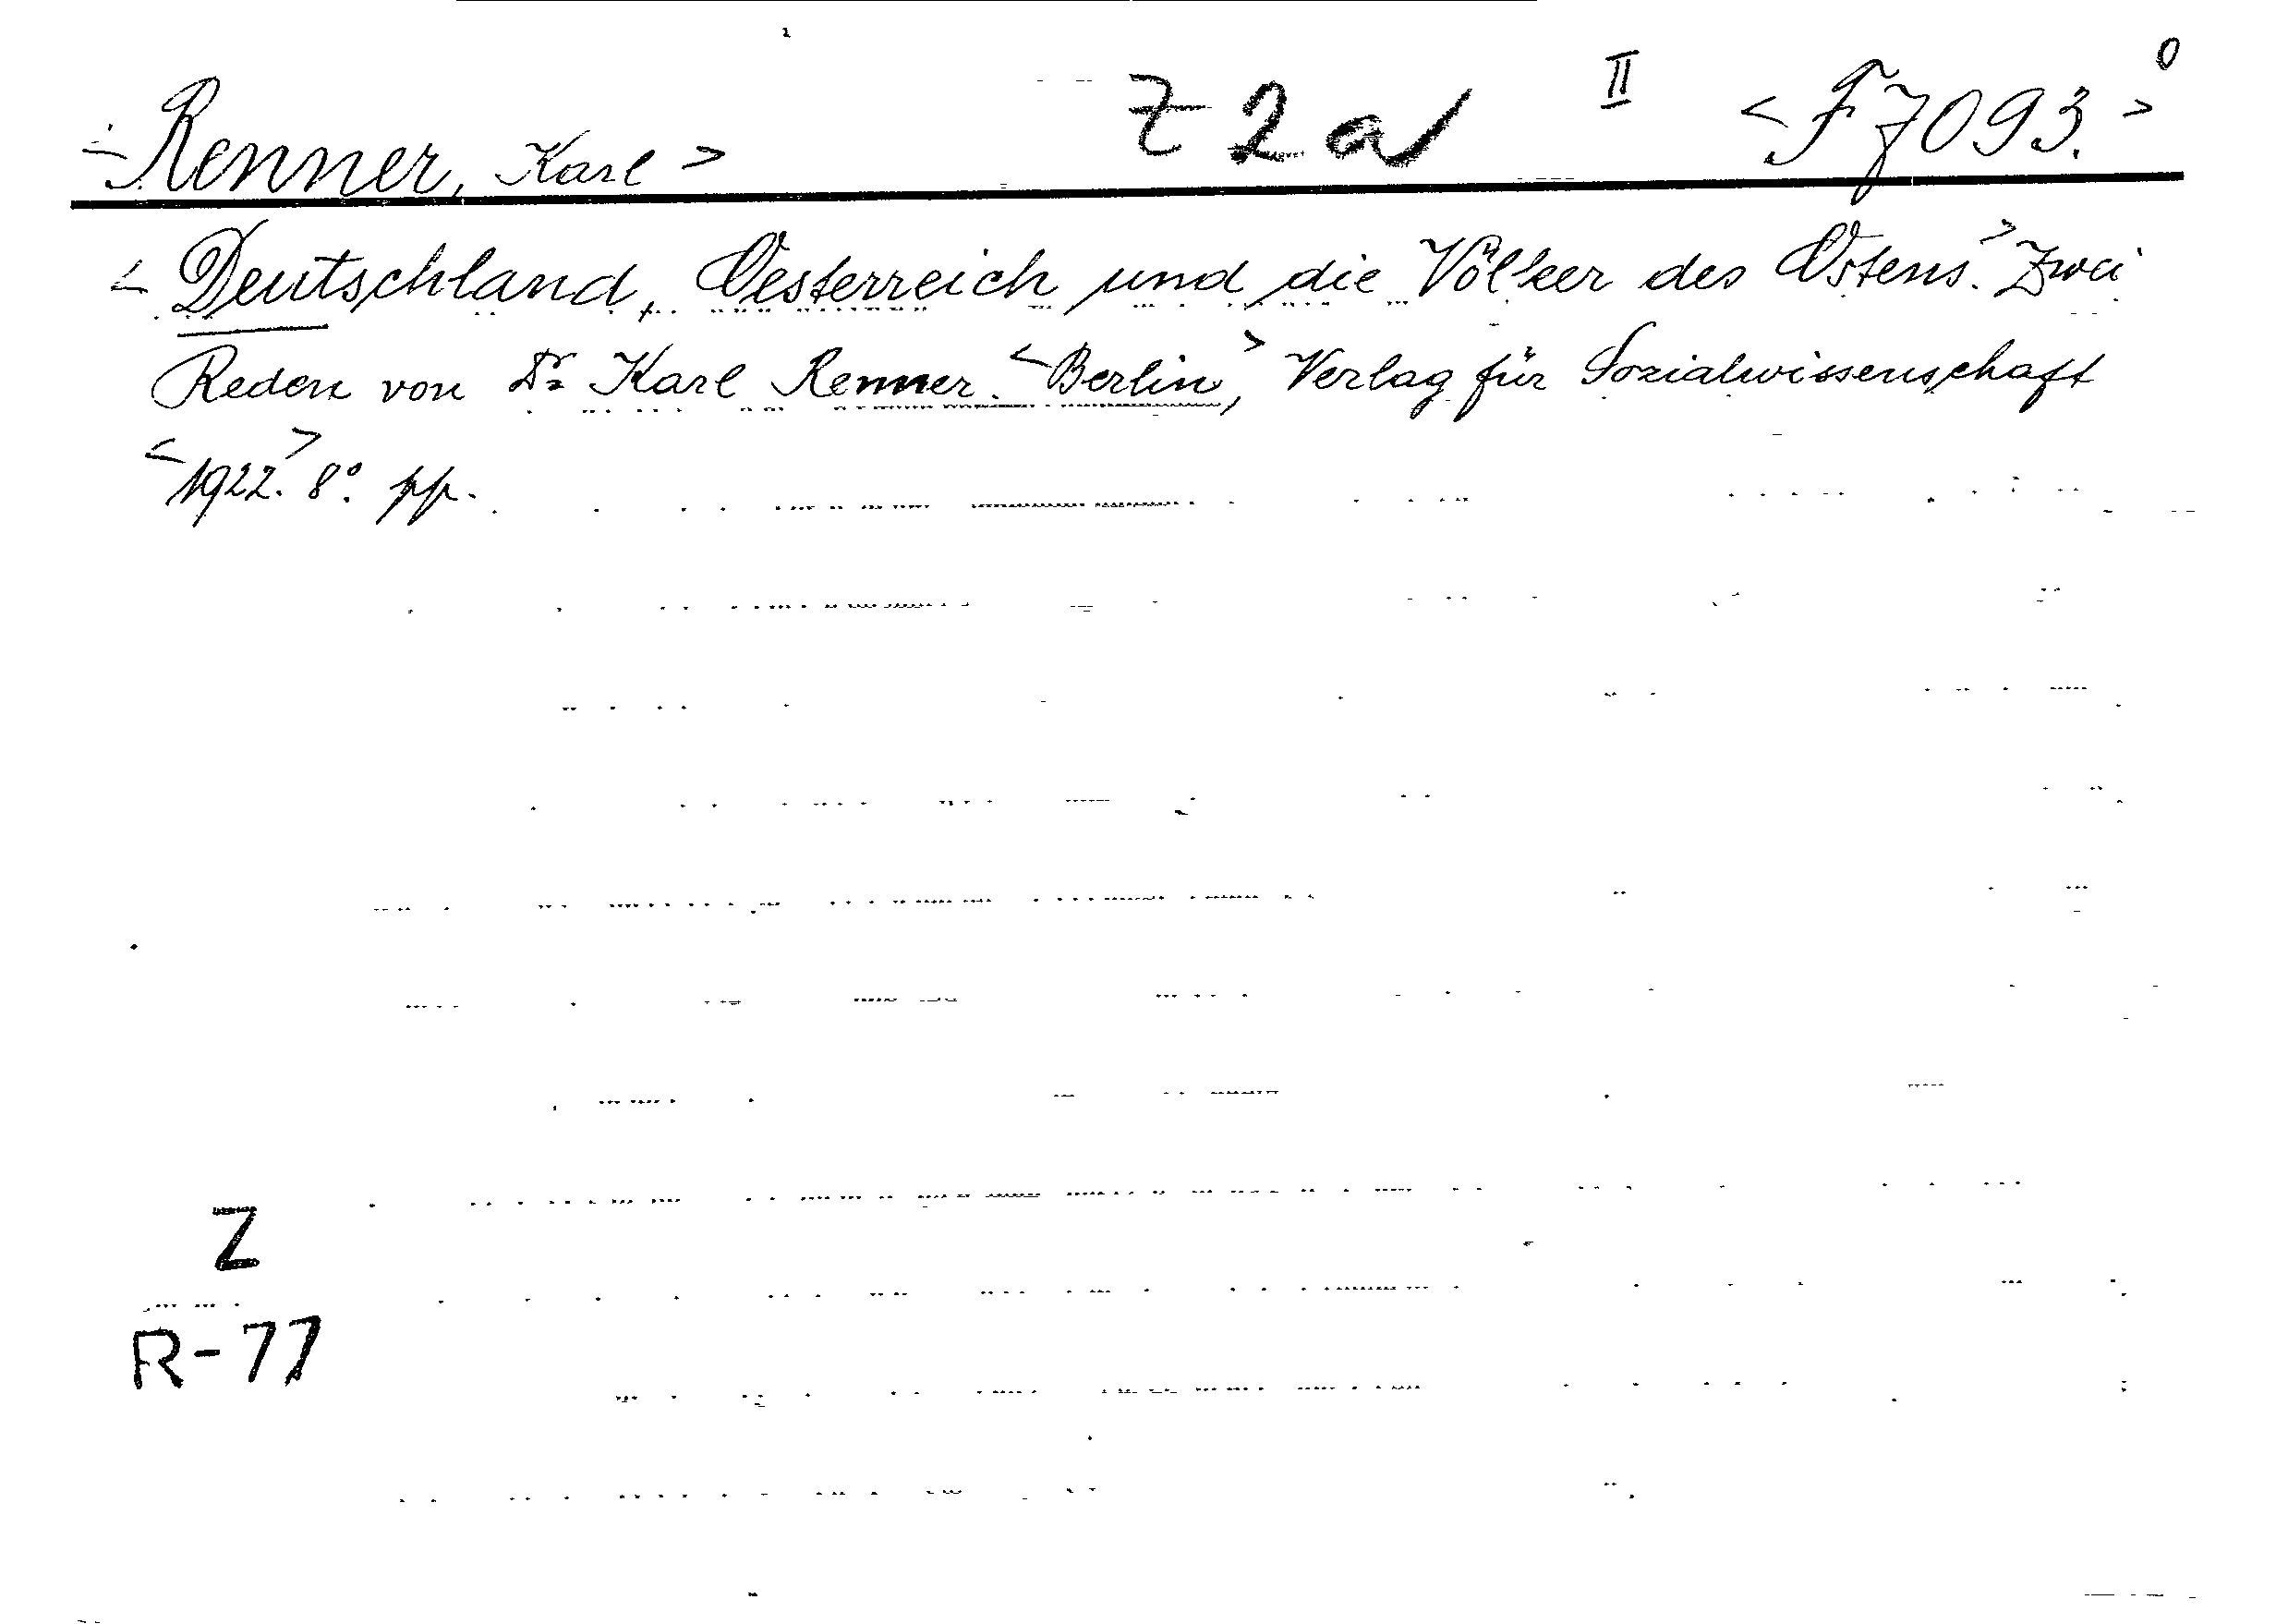 <Renner, Karl> Z 2 a II <F7093.> 0
<Deutschland, Oesterreich und die Völker des Ostens.> Zwei
Reden von Dr. Karl Renner. <Berlin,> Verlag für Sozialwissenschaft
<1922.> 8°. pp.
Z
R-77